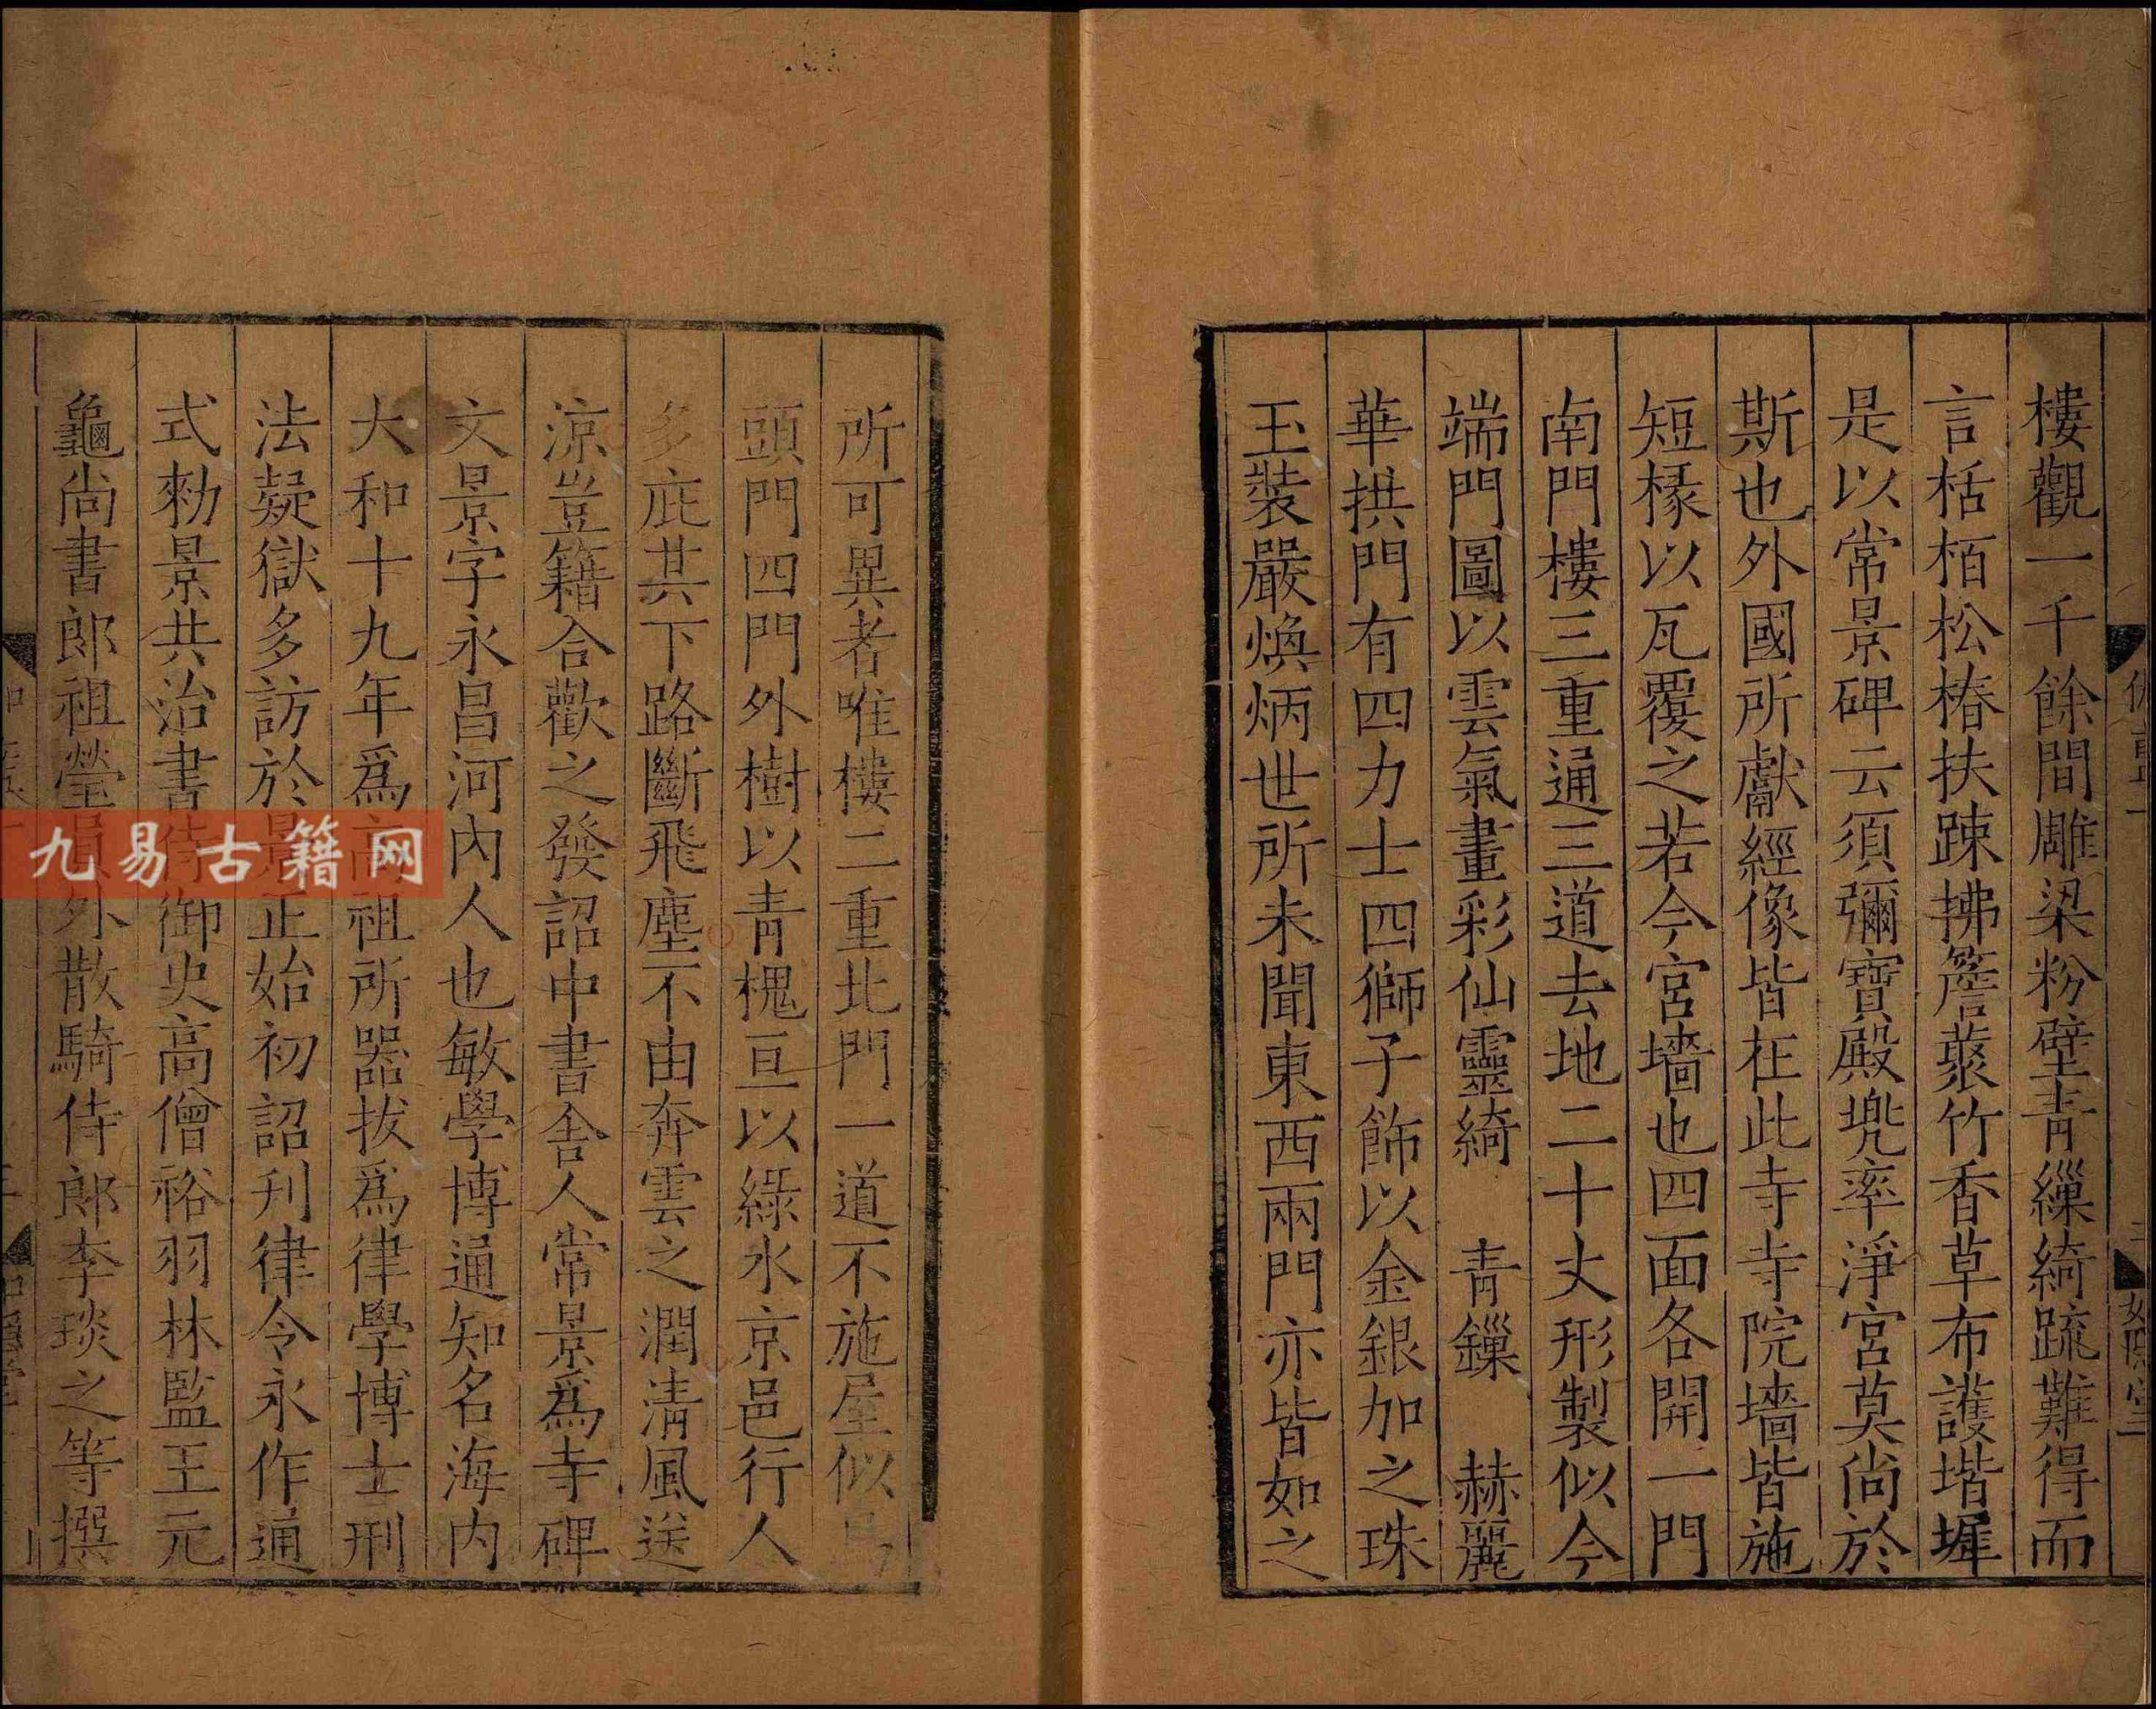 樓觀一千餘間雕梁粉壁青繅綺疏難得而
言栝栢松椿扶踈拂簷藂竹香草布護堦墀
是以常景碑云須彌寶殿兠率淨宮莫尚於
斯也外國所獻經像皆在此寺寺院墻皆施
短椽以瓦覆之若今宮墻也四面各開一門
南門樓三重通三道去地二十丈形製似今
端門圖以雲氣畫彩仙靈綺 青鏁 赫麗
華拱門有四力士四獅子飾以金銀加之珠
玉裝嚴煥炳世所未聞東西兩門亦皆如之
所可異者唯樓二重北門一道不施屋似
頭門四門外樹以青槐亘以綠水京邑行人
多庇其下路斷飛塵不由奔雲之潤清風送
涼豈籍合歡之發詔中書舍人常景爲寺碑
文景字永昌河內人也敏學博通知名海内
大和十九年爲高祖所器拔爲律學博士刑
法疑獄多訪於景正始初詔刋律令永作通
式勑景共治書侍御史高僧裕羽林監王元
龜尚書郎祖瑩員外散騎侍郎李琰之等撰
九易古籍网